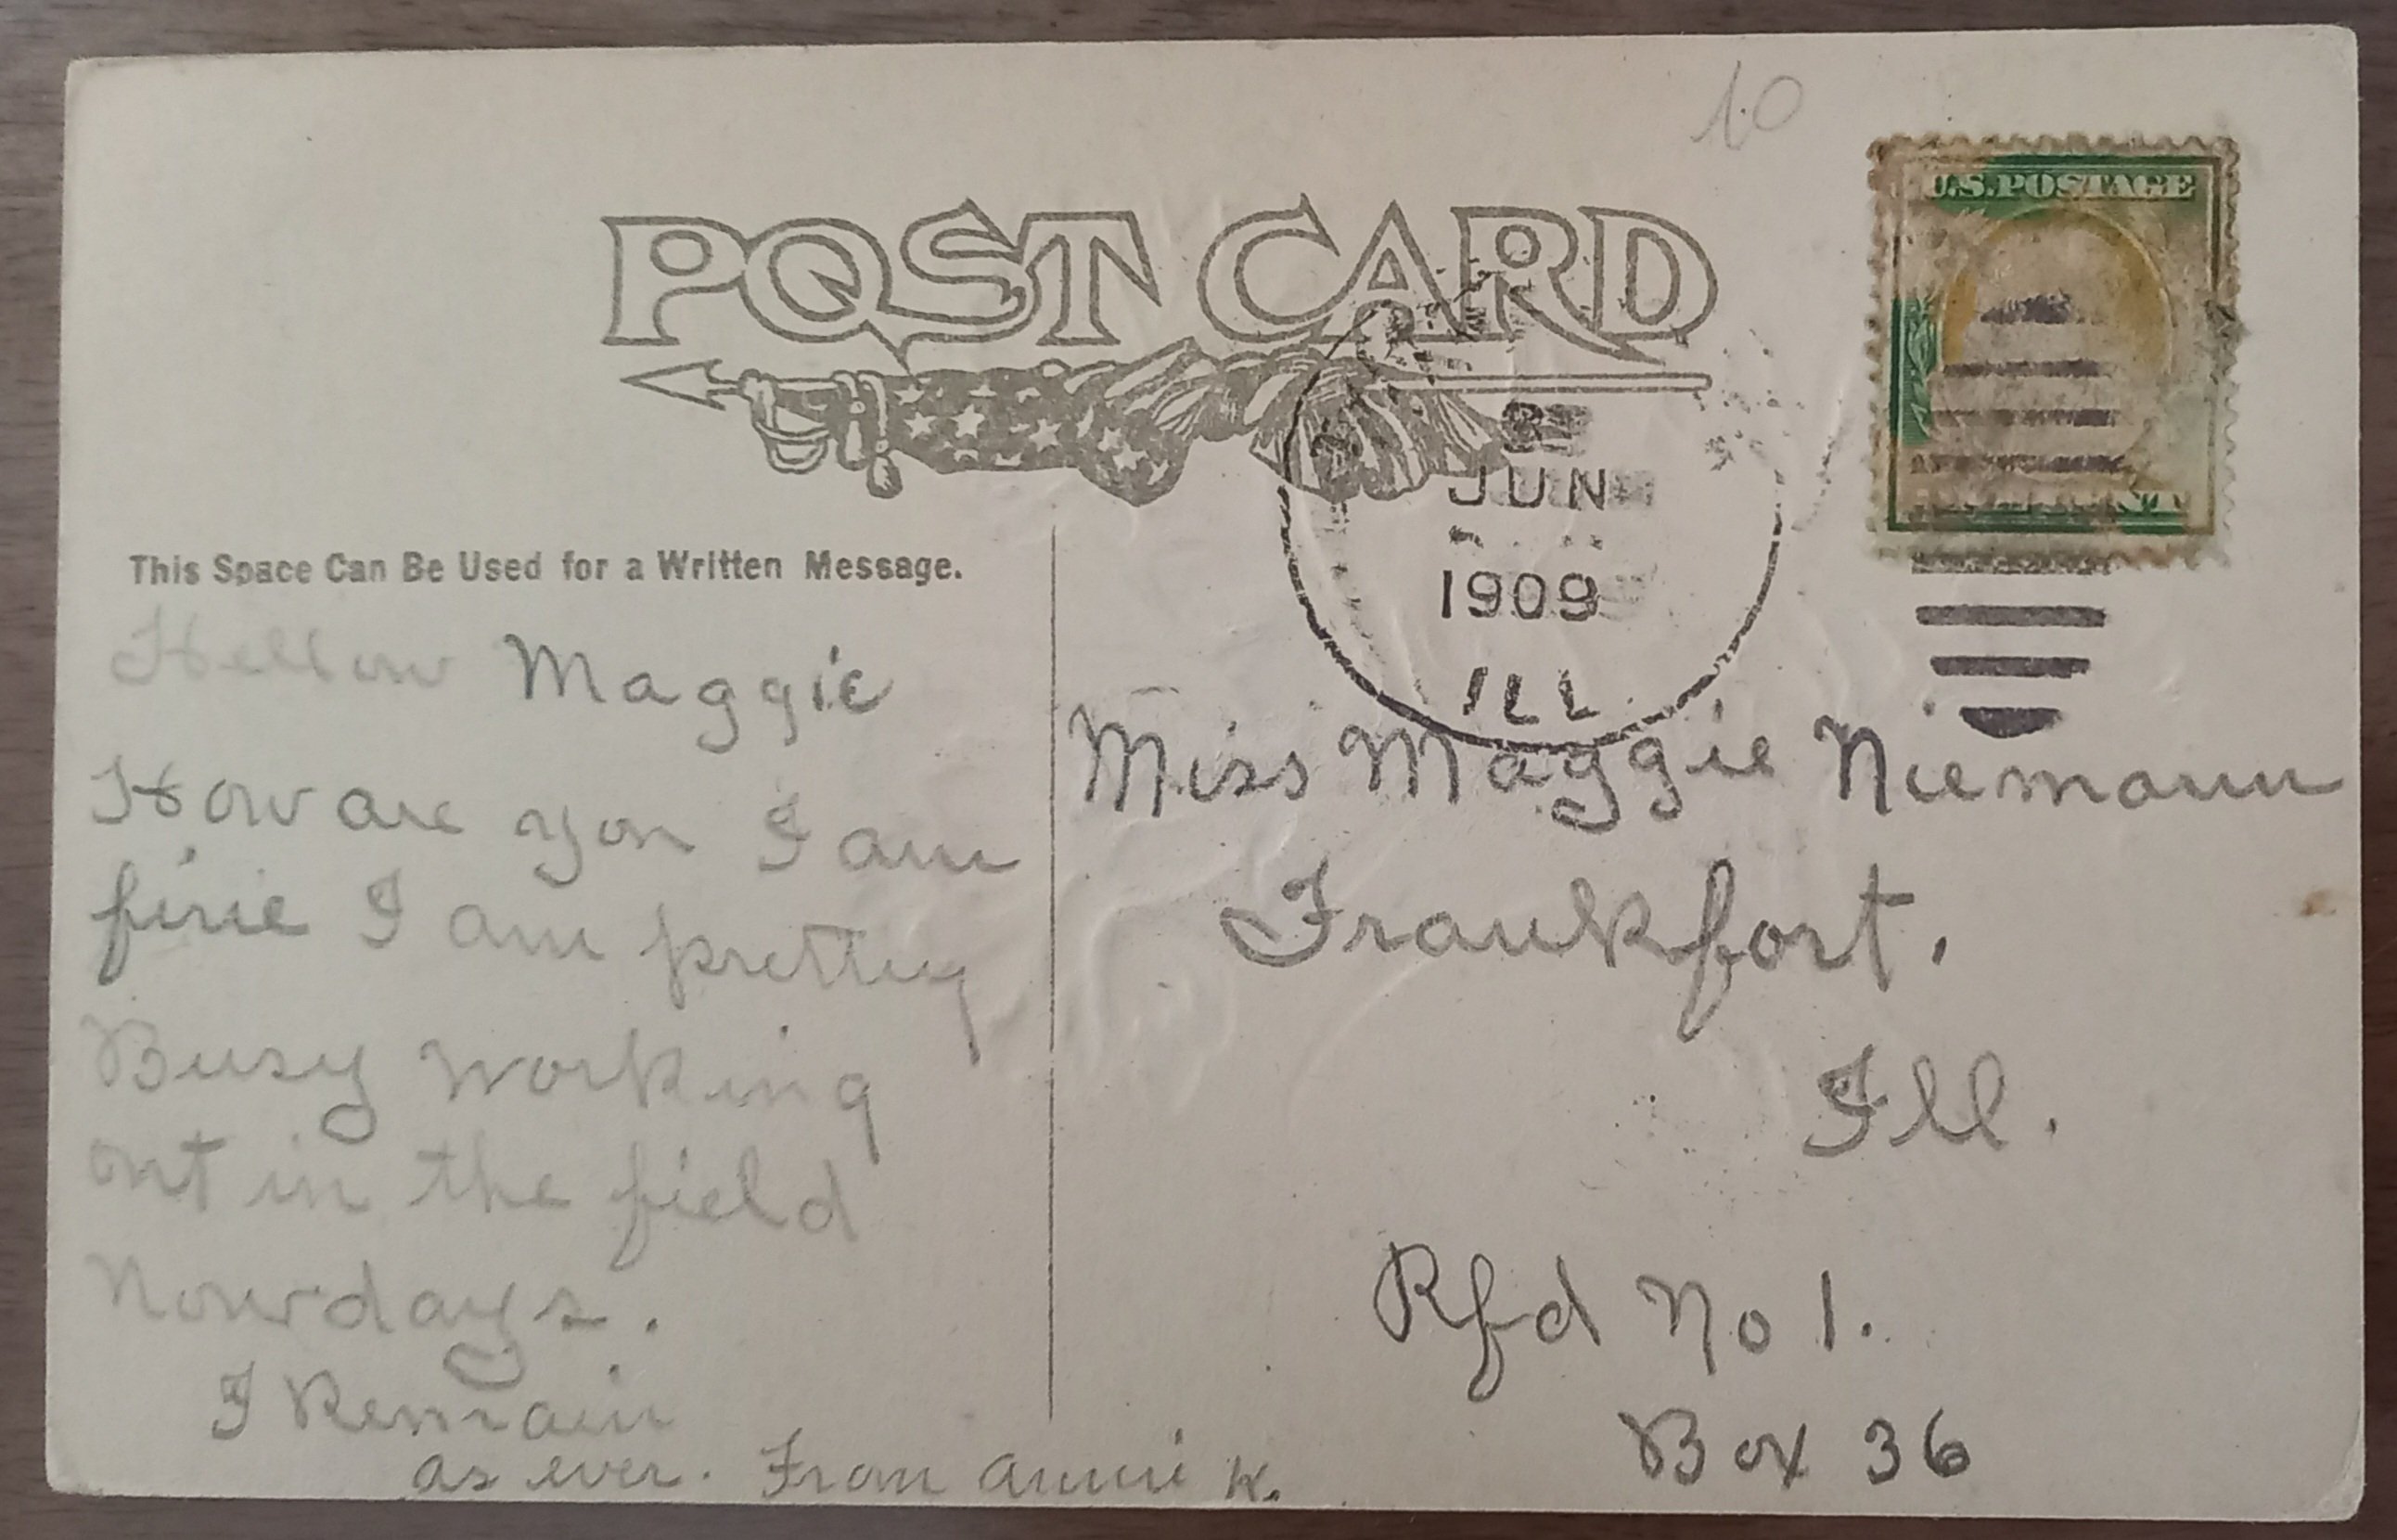 10
POST CARD
U.S. POSTAGE
JUN
1909
ILL.
This Space Can Be Used for a Written Message.
Hellow Maggie
How are you I am
fine I am pretty
Busy working
out in the field
Nowdays.
I Remain
as ever. From Annie K.
Miss Maggie Niemann
Frankfort.
Ill.
Rfd No 1.
Box 36